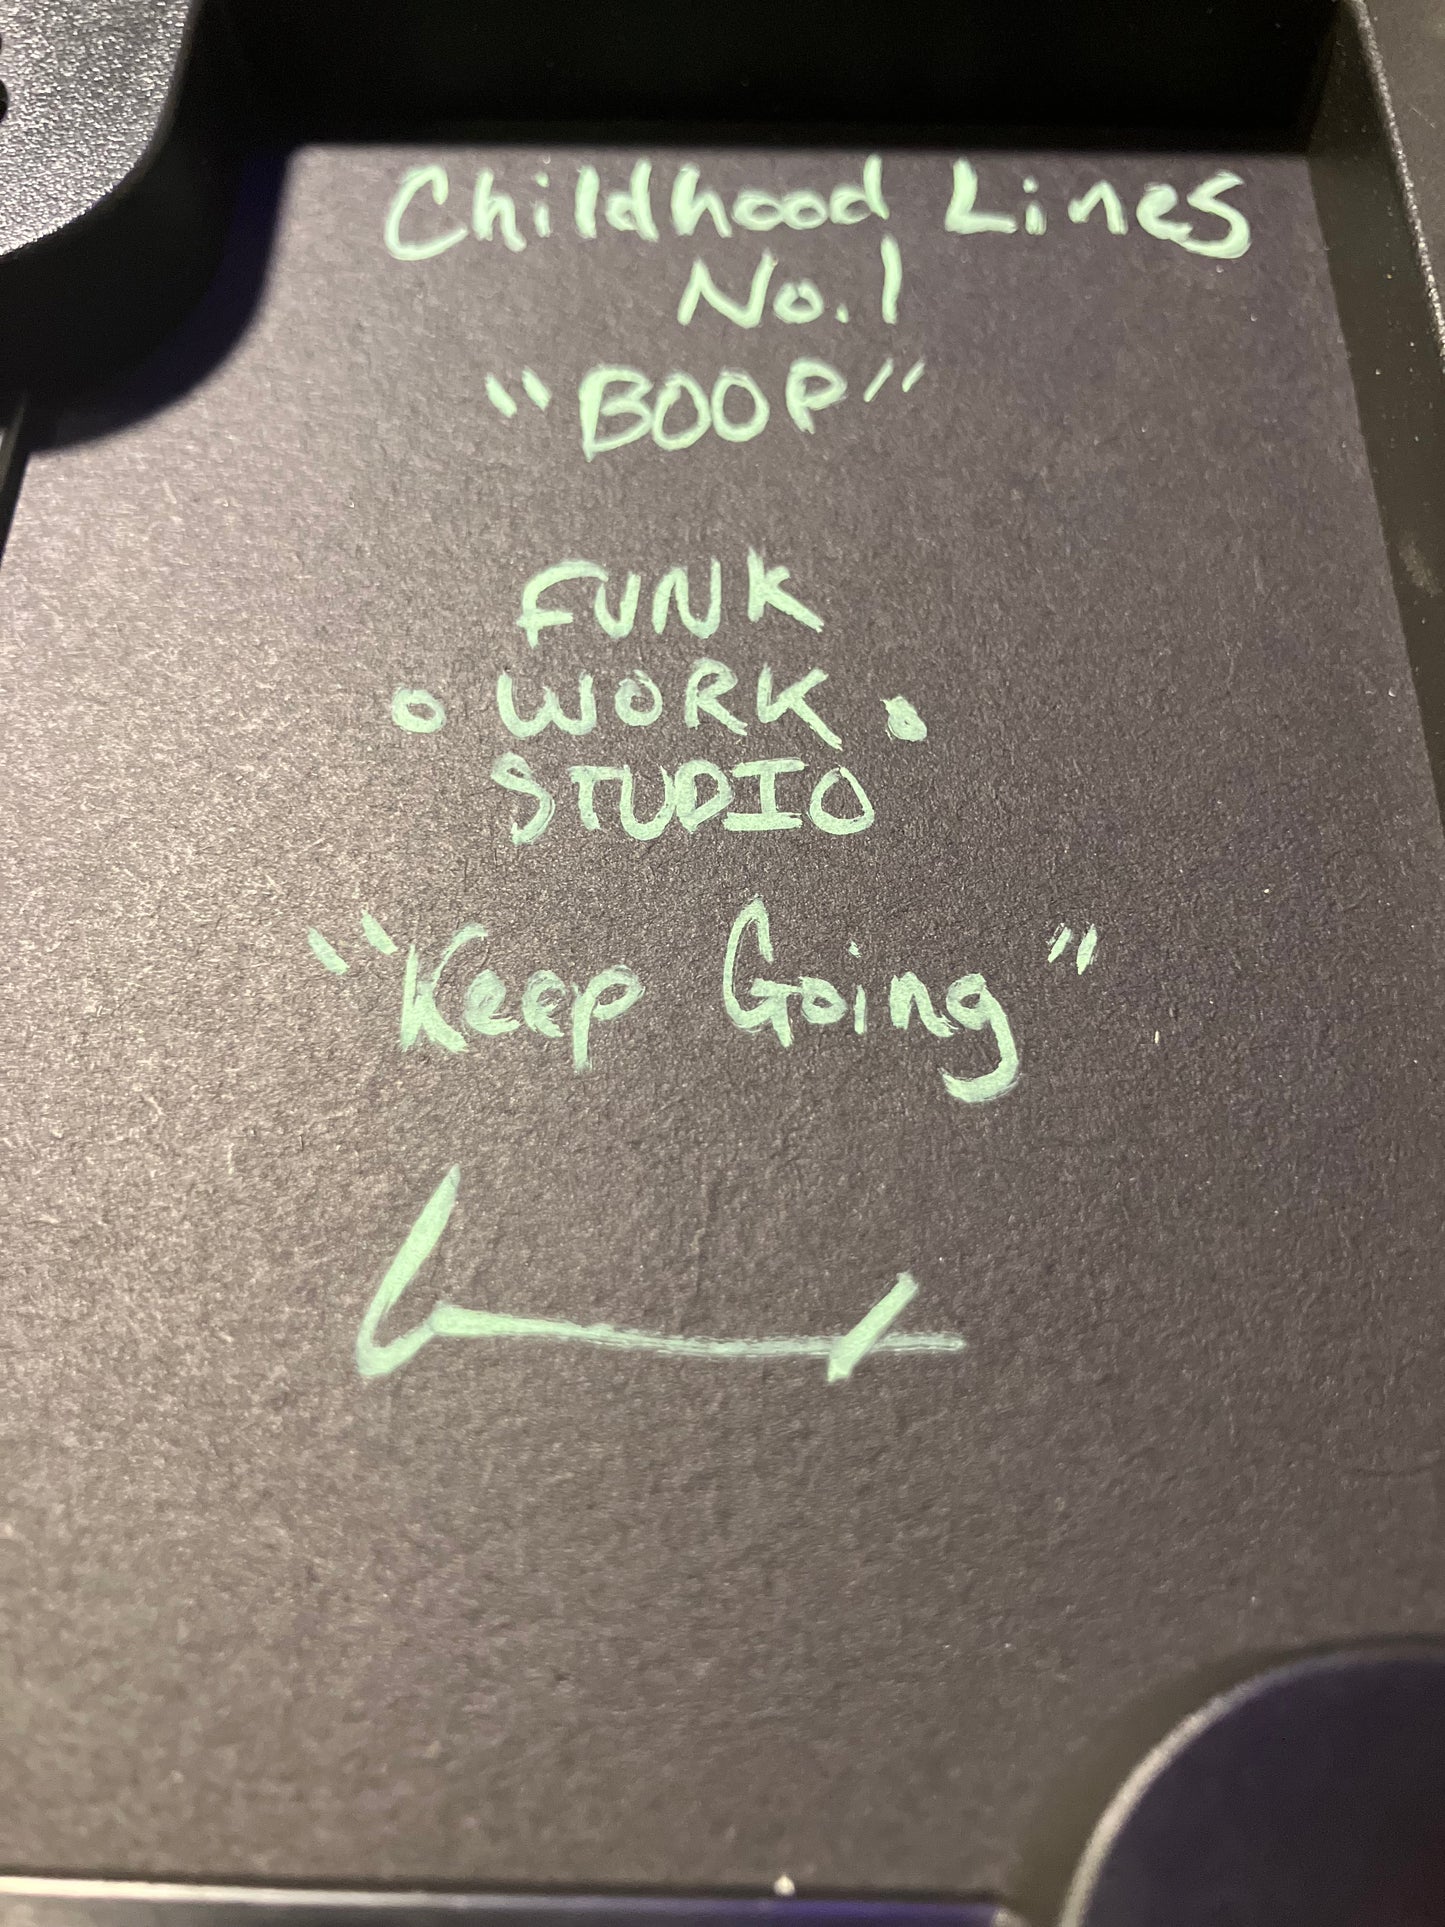 Childhood Lines
No. 1
"BOOP"
FUNK
• WORK •
STUDIO
"Keep Going"